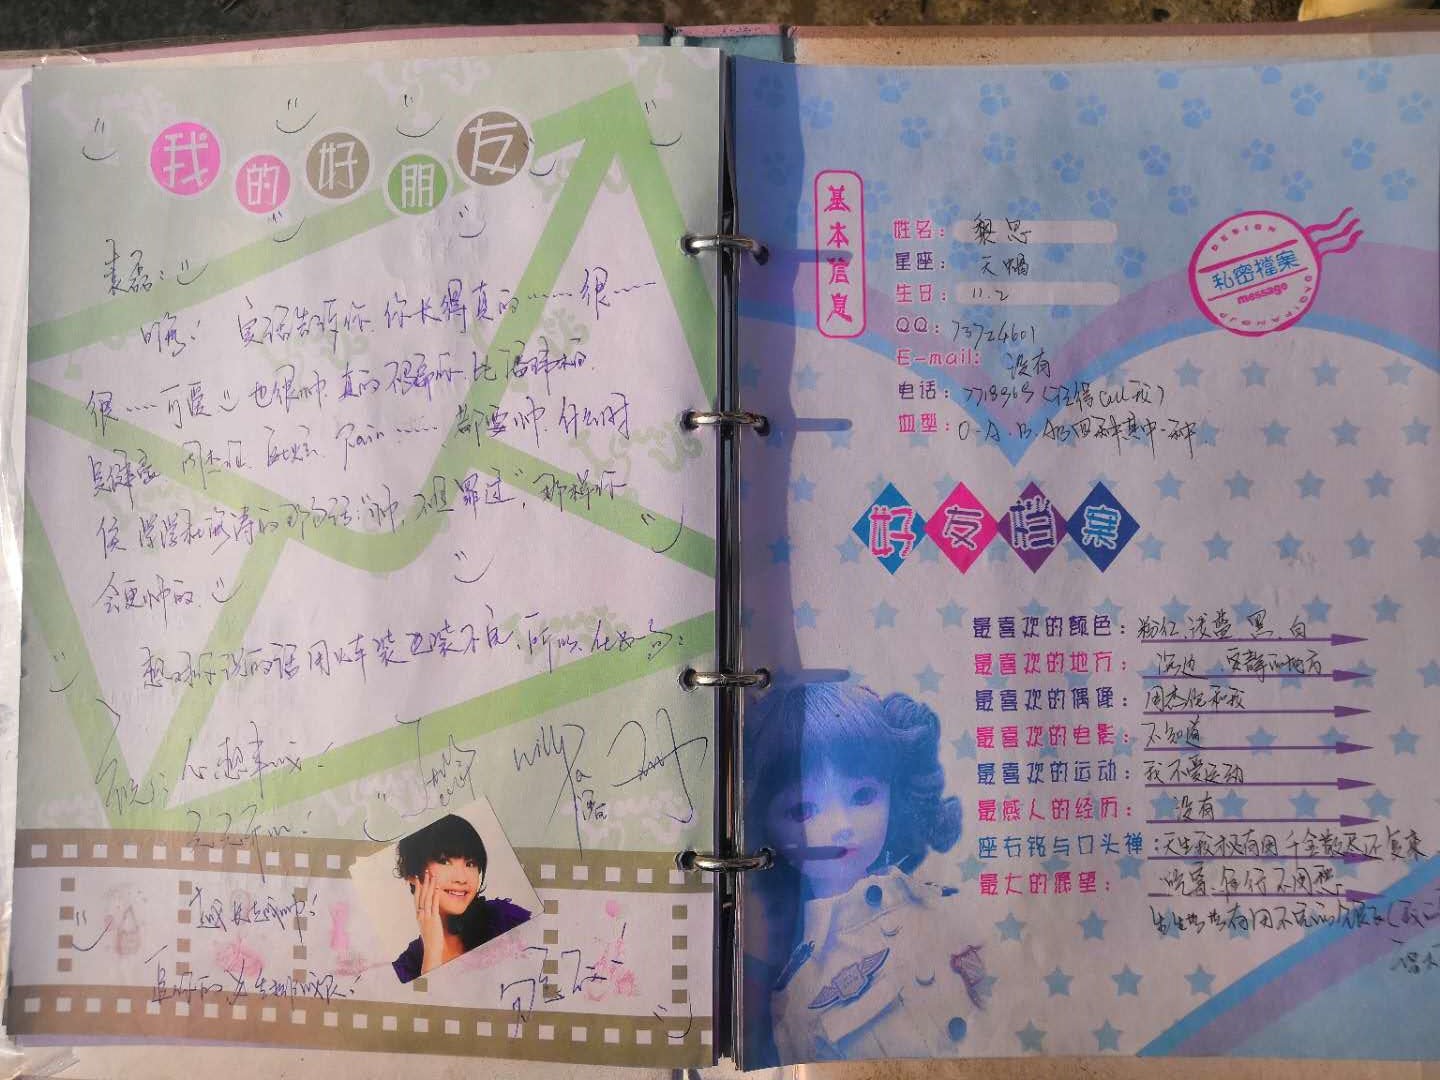 我的好朋友
袁磊:
嗨! 实话告诉你,你长得真的……很……
很……可爱 也很帅,真的不骗你,比潘玮柏
吴建豪 周杰伦 Rain……都要帅,什么时
侯 学学 的那句话:"帅,不是罪过",那样你
会更帅的.
想对你说的话用火车装也装不完,所以,
祝: 心想事成!
天天开心!
Willy
越长越帅!
追你的女生排成队!
基本信息
姓名: 黎思
星座: 天蝎
生日: 11.2
QQ: 73724601
E-mail: 没有
电话: 7718365 (记得call我)
血型: O.A.B.AB四种其中一种.
DESIGN
私密檔案
message
好友档案
最喜欢的颜色: 粉红.浅蓝.黑.白
最喜欢的地方: 海边 安静的地方
最喜欢的偶像: 周杰伦和我
最喜欢的电影: 不知道
最喜欢的运动: 我不爱运动
最感人的经历: 没有
座右铭与口头禅: 天生我材必有用 千金散尽还复来
最大的愿望:
生生世世有用不完的